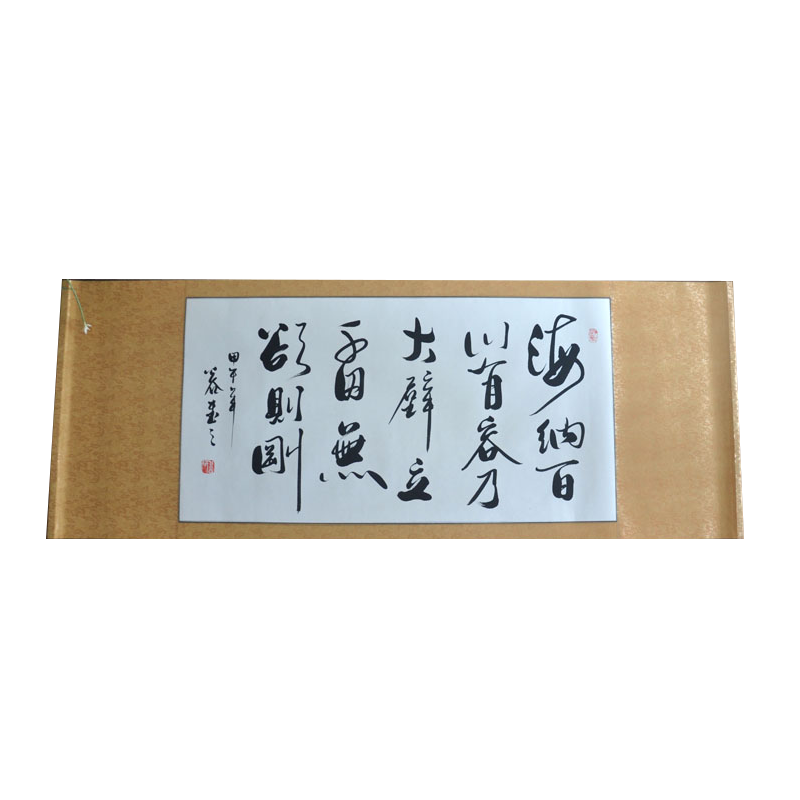 海納百
川有容乃
大壁立
千仞無
欲則剛
甲午年